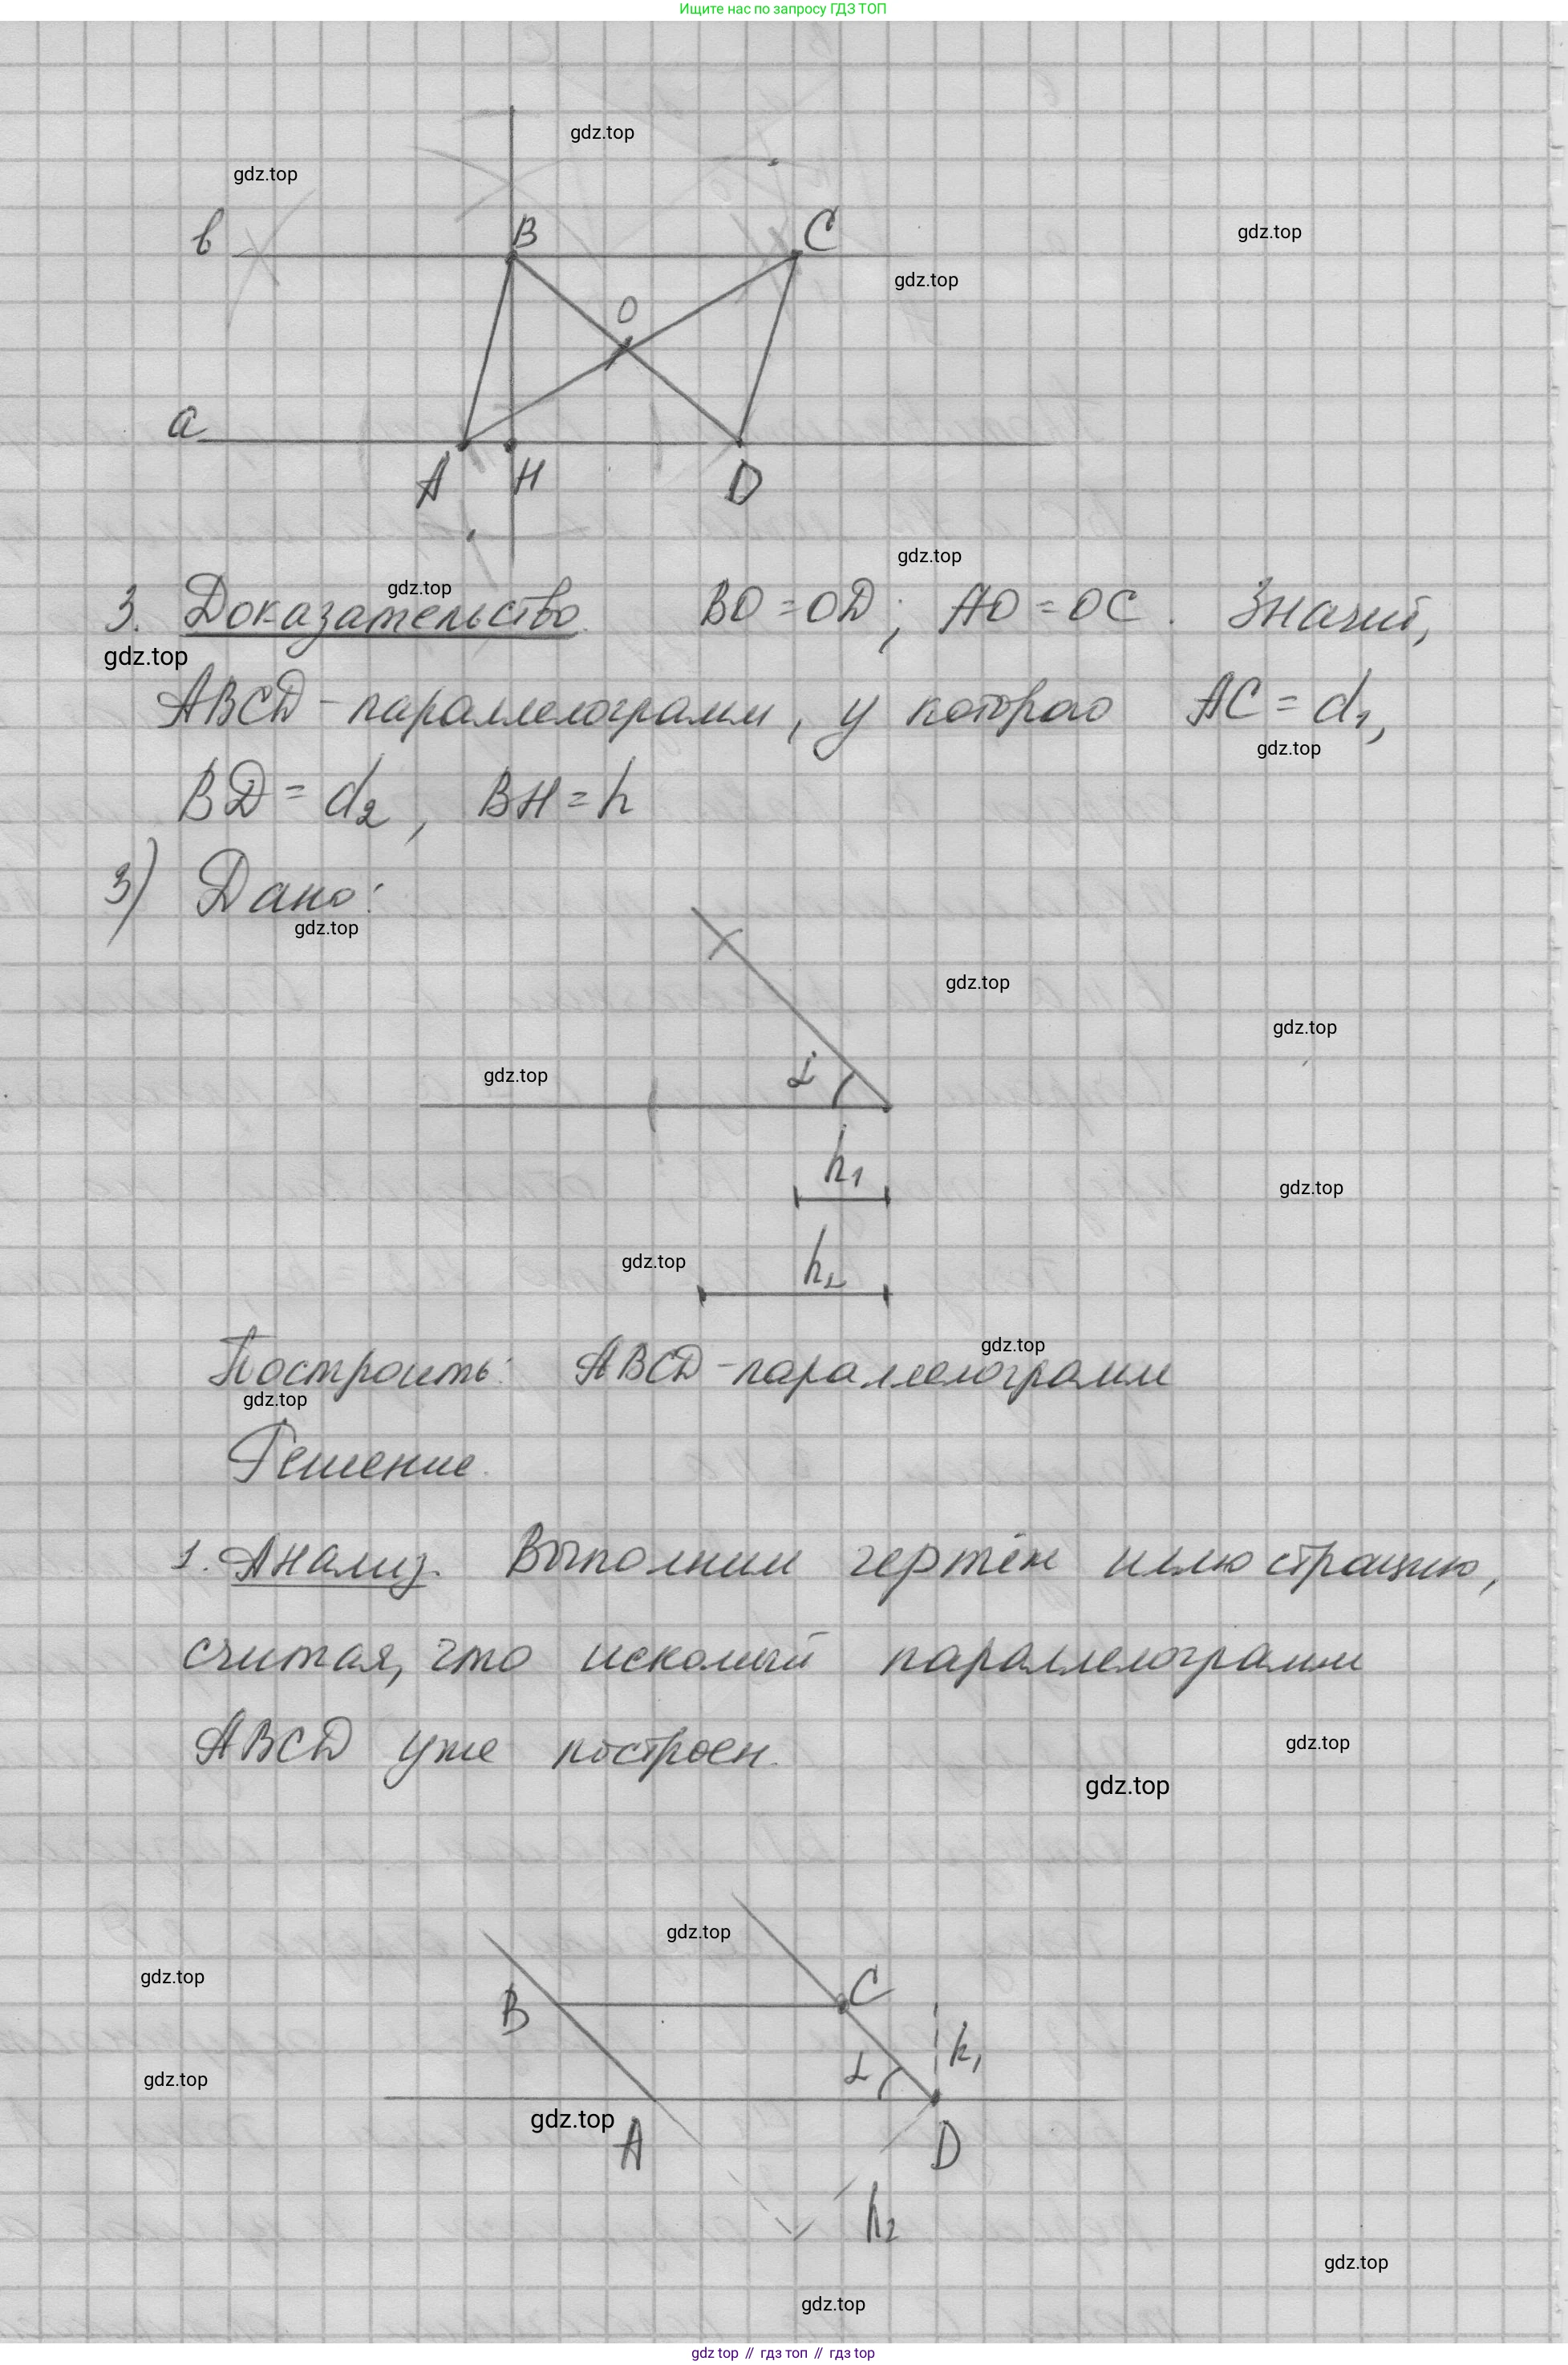 Ищите нас по запросу ГДЗ ТОП
gdz.top
gdz.top
в
B
C
gdz.top
gdz.top
O
a
A
H
D
gdz.top
gdz.top
3. Доказательство. BO = OD; AO = OC. Значит,
gdz.top
ABCD - параллелограмм, у которого AC = d₁,
gdz.top
BD = d₂, BH = h
3) Дано:
gdz.top
gdz.top
gdz.top
gdz.top
α
h₁
gdz.top
gdz.top
h₂
gdz.top
Построить: ABCD - параллелограмм
gdz.top
Решение.
1. Анализ. Выполним чертёж иллюстрацию,
считая, что искомый параллелограмм
ABCD уже построен.
gdz.top
gdz.top
gdz.top
gdz.top
B
C
h₁
α
gdz.top
gdz.top
A
D
h₂
gdz.top
gdz.top
gdz top // гдз топ // гдз top